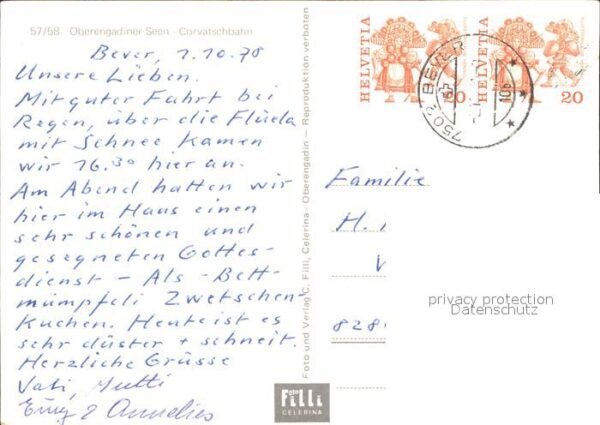 57/58 Oberengadiner Seen - Corvatschbahn
Bever, 1.10.78
Unsere Lieben.
Mit guter Fahrt bei
Regen, über die Flüela
mit Schnee kamen
wir 16.30 hier an.
Am Abend hatten wir
hier im Haus einen
sehr schönen und
gesegneten Gottes-
dienst - Als - Bett-
mümpfeli Zwetschen-
Kuchen. Heute ist es
sehr düster + schneit.
Herzliche Grüsse
Vati, Mutti
Annelies
Foto und Verlag C. Filli, Celerina Oberengadin - Reproduktion verboten
Foto
Filli
CELERINA
HELVETIA
20
HELVETIA
20
7502 BEVER
Familie
H.
828
privacy protection
Datenschutz